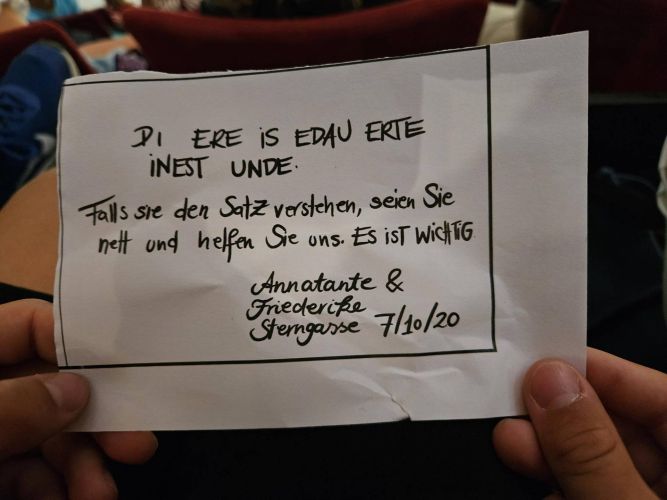 DI ERE iS EDAU ERTE
iNEST UNDE.
Falls sie den Satz verstehen, seien Sie
nett und helfen Sie uns. Es iST WiCHTiG
Annatante &
Friederike
Sterngasse 7/10/20